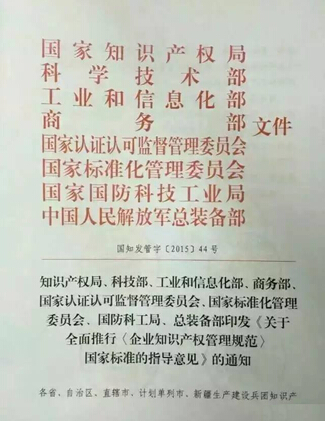 国家知识产权局
科学技术部
工业和信息化部
商务部 文件
国家认证认可监督管理委员会
国家标准化管理委员会
国家国防科技工业局
中国人民解放军总装备部
国知发管字〔2015〕44号
知识产权局、科技部、工业和信息化部、商务部、
国家认证认可监督管理委员会、国家标准化管理
委员会、国防科工局、总装备部印发《关于
全面推行〈企业知识产权管理规范〉
国家标准的指导意见》的通知
各省、自治区、直辖市、计划单列市、新疆生产建设兵团知识产